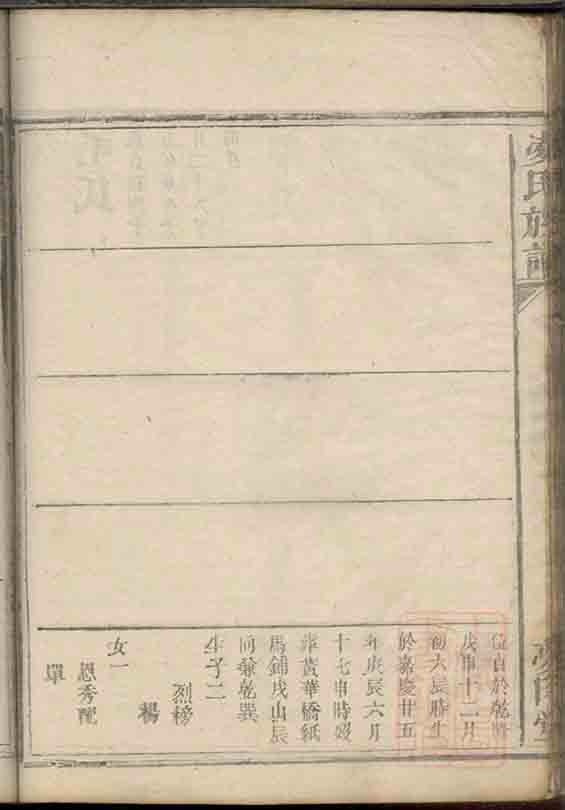 氏族譜
戊申十二月
初六辰時生
於嘉慶廿五
年庚辰六月
十七申時歿
葬黃華橋紙
馬鋪戌山辰
向兼乾巽
生子二
烈榜
楊
女一
恩秀配
單